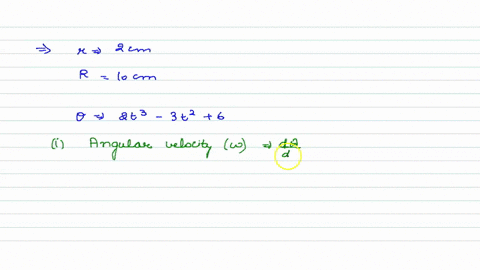 ⇒ r ⇒ 2 cm
R = 10 cm
θ ⇒ 2t³ - 3t² + 6
(i) Angular velocity (ω) ⇒ dθ/d